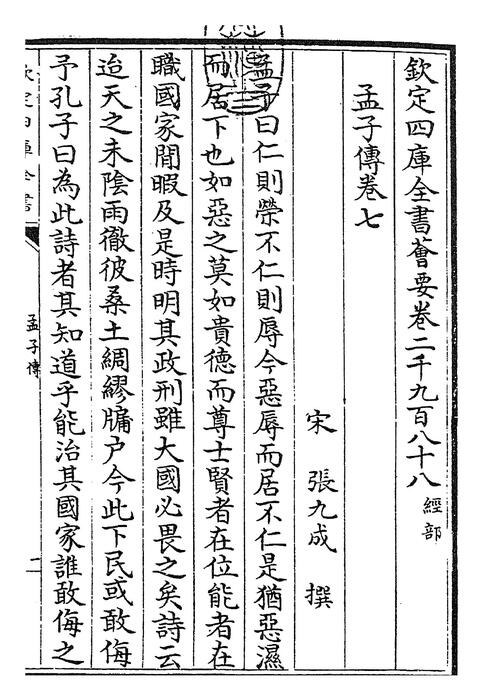 欽定四庫全書薈要卷二千九百八十八 經部
孟子傳卷七
宋 張九成 撰
孟子曰仁則榮不仁則辱今惡辱而居不仁是猶惡濕
而居下也如惡之莫如貴德而尊士賢者在位能者在
職國家閒暇及是時明其政刑雖大國必畏之矣詩云
迨天之未陰雨徹彼桑土綢繆牖户今此下民或敢侮
予孔子曰為此詩者其知道乎能治其國家誰敢侮之
欽定四庫全書
孟子傳